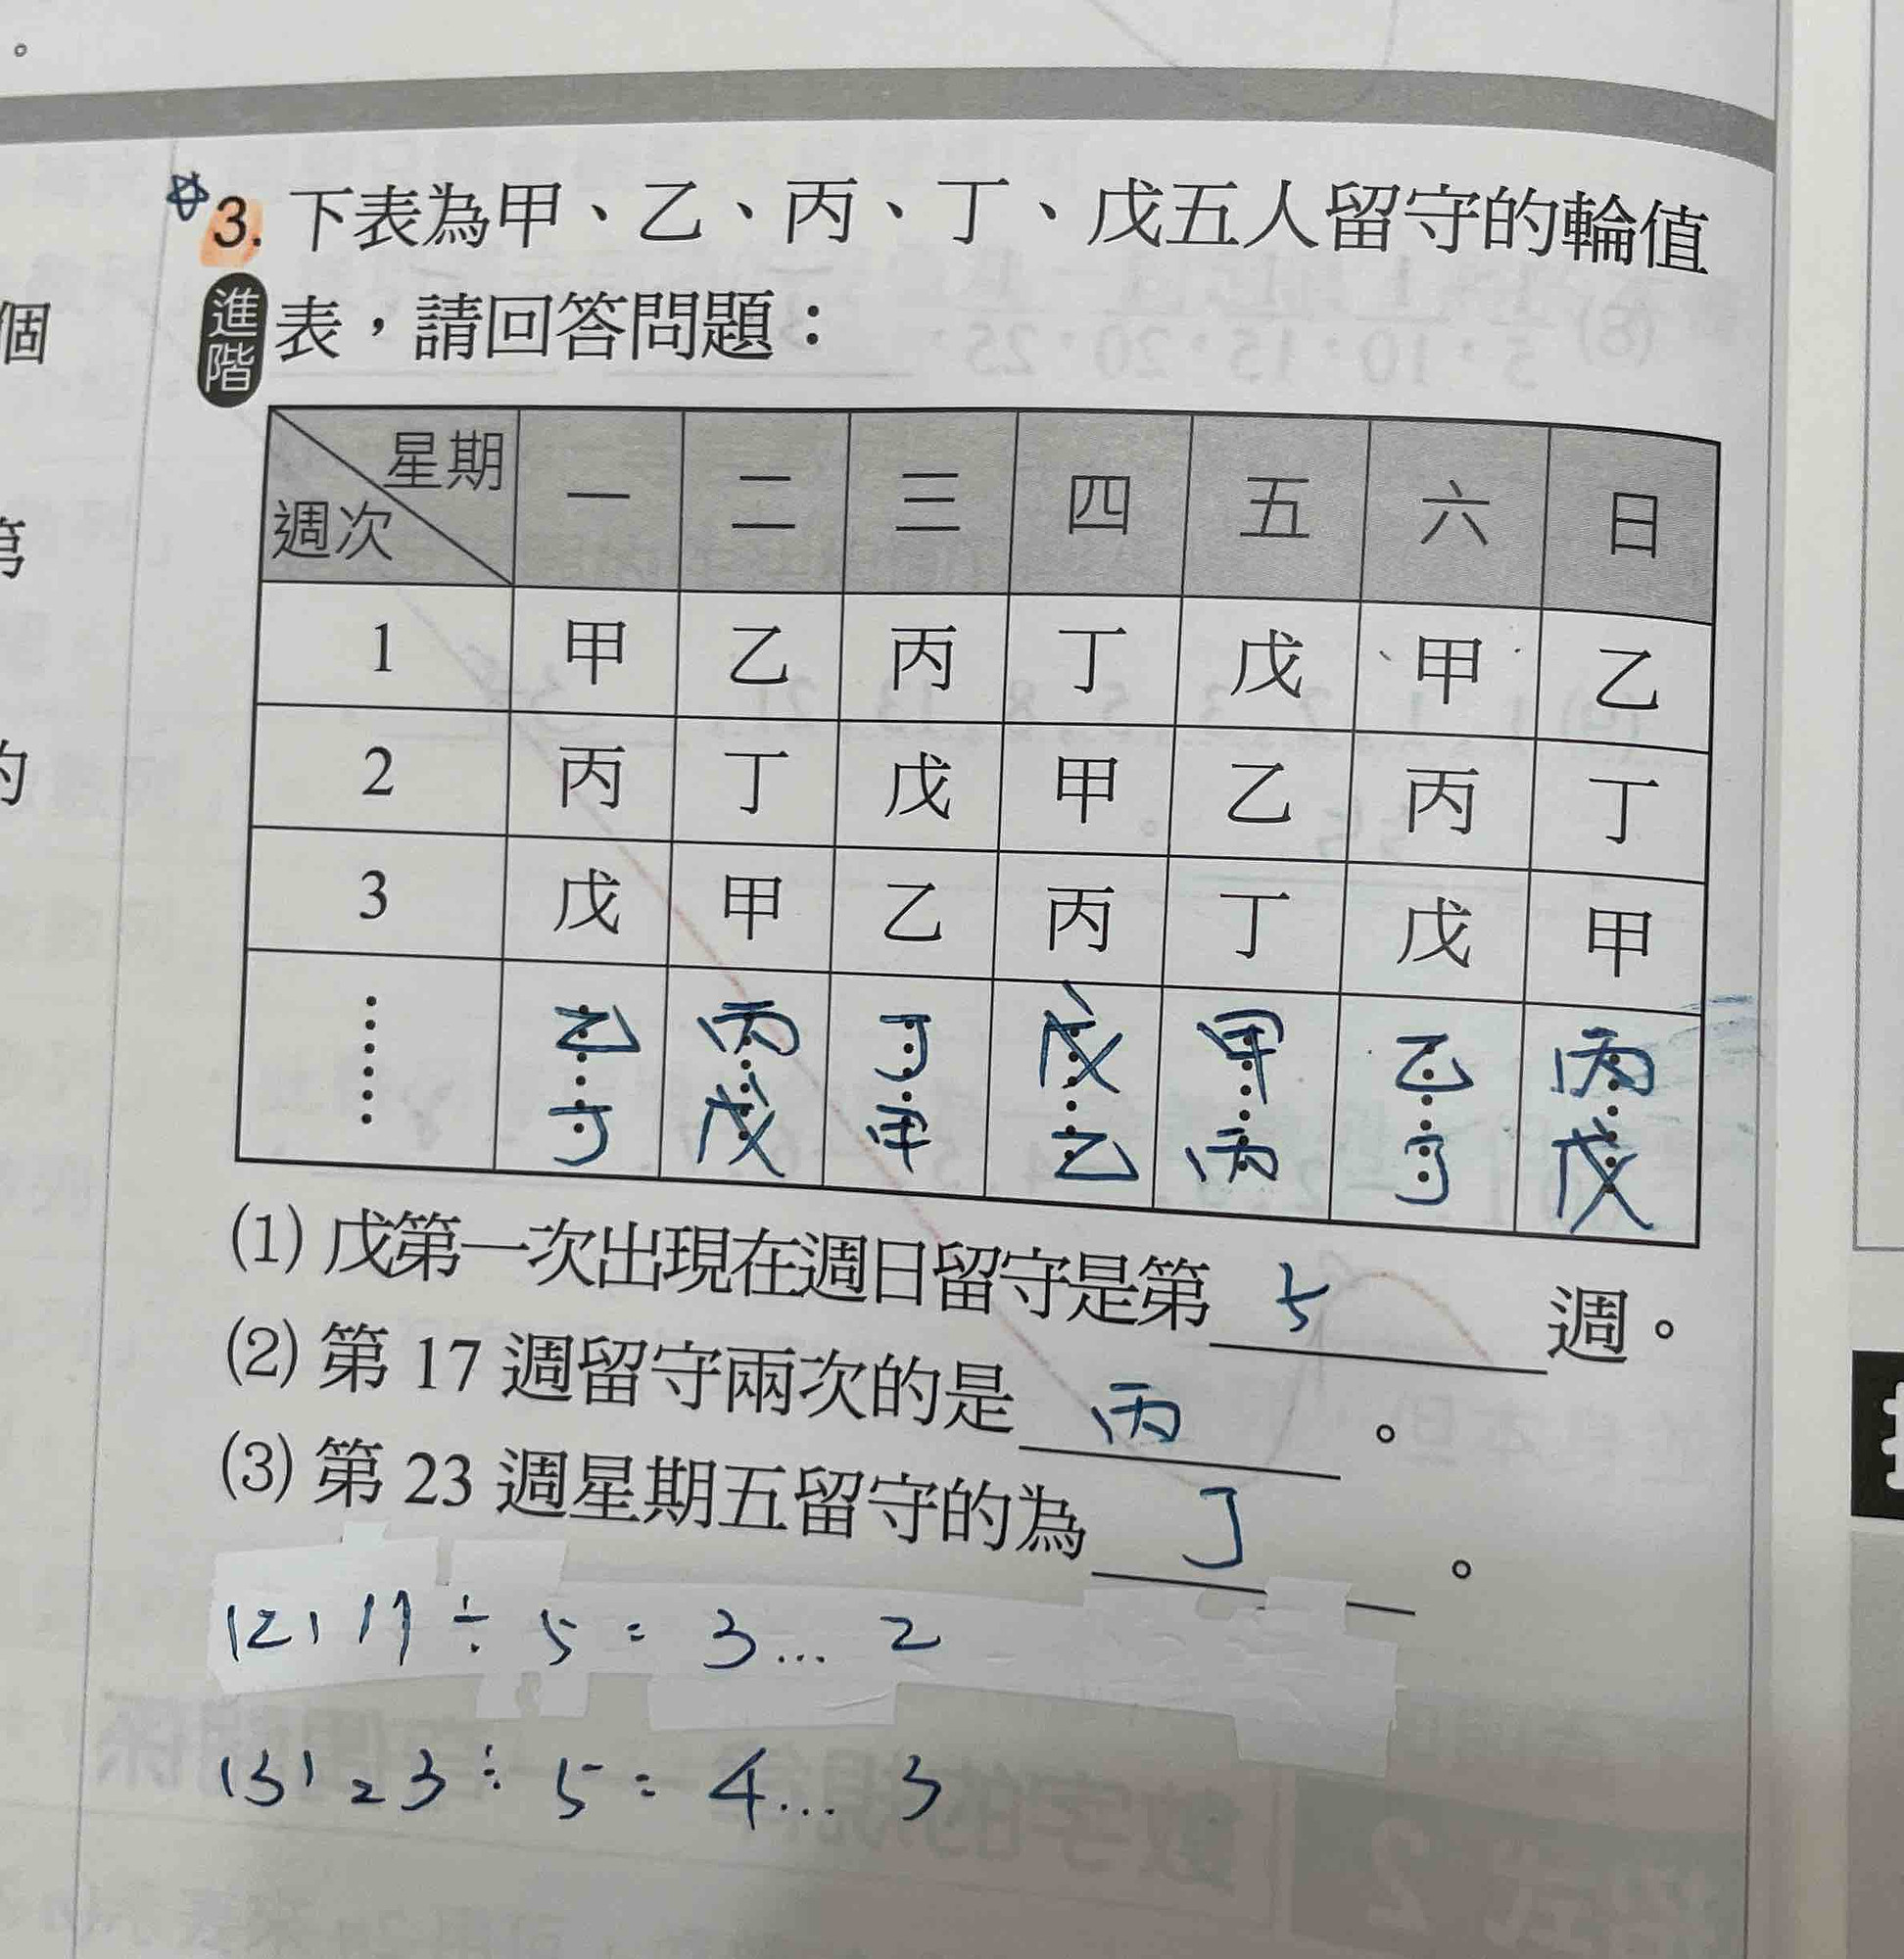 。
3. 下表為甲、乙、丙、丁、戊五人留守的輪值
進階 表，請回答問題：
個
第
的
星期 週次 一 二 三 四 五 六 日
1 甲 乙 丙 丁 戊 甲 乙
2 丙 丁 戊 甲 乙 丙 丁
3 戊 甲 乙 丙 丁 戊 甲
乙 丙 丁 戊 甲 乙 丙
丁 戊 甲 乙 丙 丁 戊
(1) 戊第一次出現在週日留守是第 5 週。
(2) 第 17 週留守兩次的是 丙 。
(3) 第 23 週星期五留守的為 丁 。
(2) 17 ÷ 5 = 3... 2
(3) 23 ÷ 5 = 4... 3